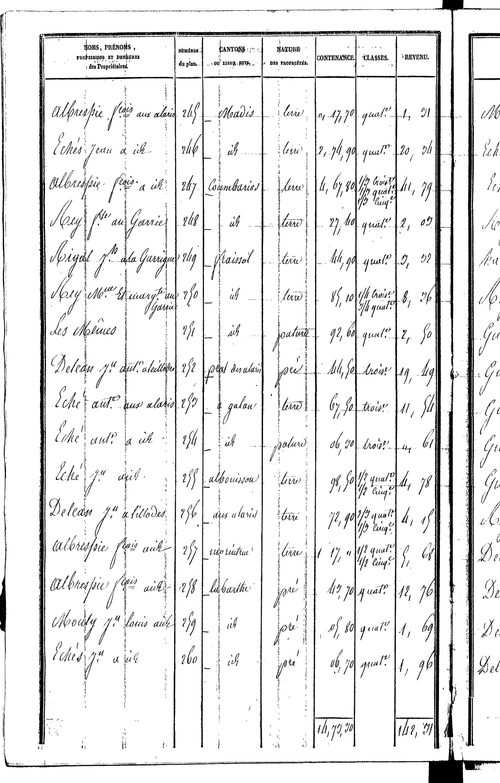 NOMS, PRÉNOMS, PROFESSIONS ET DEMEURES des Propriétaires. NUMÉROS du plan. CANTONS OU LIEUX DITS. NATURE DES PROPRIÉTÉS. CONTENANCE. CLASSES. REVENU.
Albrespie f.çois aux alaris 245 Madis terre 17,70 quat.e 1, 31
Echés Jean a id 246 id terre 2, 74,90 quat.e 20, 34
Albrespie f.çois a id 247 Coumbarios terre 4, 67,80 1/3 trois.e 1/3 quat.e 1/3 cinq.e 41, 79
Rey au Garric 248 id terre 27,40 quat.e 2, 03
Rigal a la Garrigue 249 fraissol terre 44,90 quat.e 3, 32
Rey au Garric 250 id terre 85,10 1/4 trois.e 3/4 quat.e 8, 36
Les Mêmes 251 id pature 92,60 quat.e 2, 50
Deleau J.n ant.e 252 prat des alaris pré 44,50 trois.e 19, 49
Eché ant.e aux alaris 253 a galan terre 67,50 trois.e 11, 54
Eché ant.e a id 254 id pature 06,30 trois.e 61
Eché J.n aid 255 albouissou terre 98,50 1/2 quat.e 1/2 cinq.e 4, 78
Deleau J.n 256 aux alaris terre 72,90 2/3 quat.e 1/3 cinq.e 4, 15
Albrespie f.çois aid 257 terre 1 17, " 1/2 quat.e 1/2 cinq.e 5, 68
Albrespie f.çois aid 258 labarthe pré 43,70 quat.e 12, 76
Mouly J.n louis aid 259 id pré 05,80 quat.e 1, 69
Echés J.n a id 260 id pré 06,70 quat.e 1, 96
14,73,30 142, 31